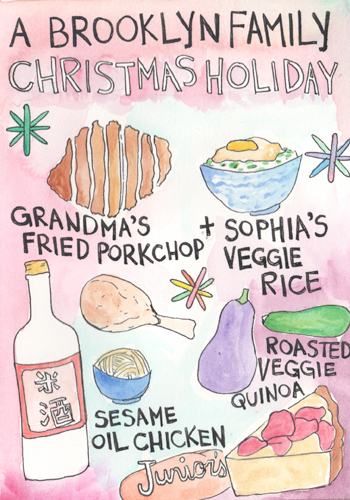 A BROOKLYN FAMILY
CHRISTMAS HOLIDAY
GRANDMA'S
FRIED PORKCHOP
+ SOPHIA'S
VEGGIE
RICE
米
酒
ROASTED
VEGGIE
QUINOA
SESAME
OIL CHICKEN
Junior's